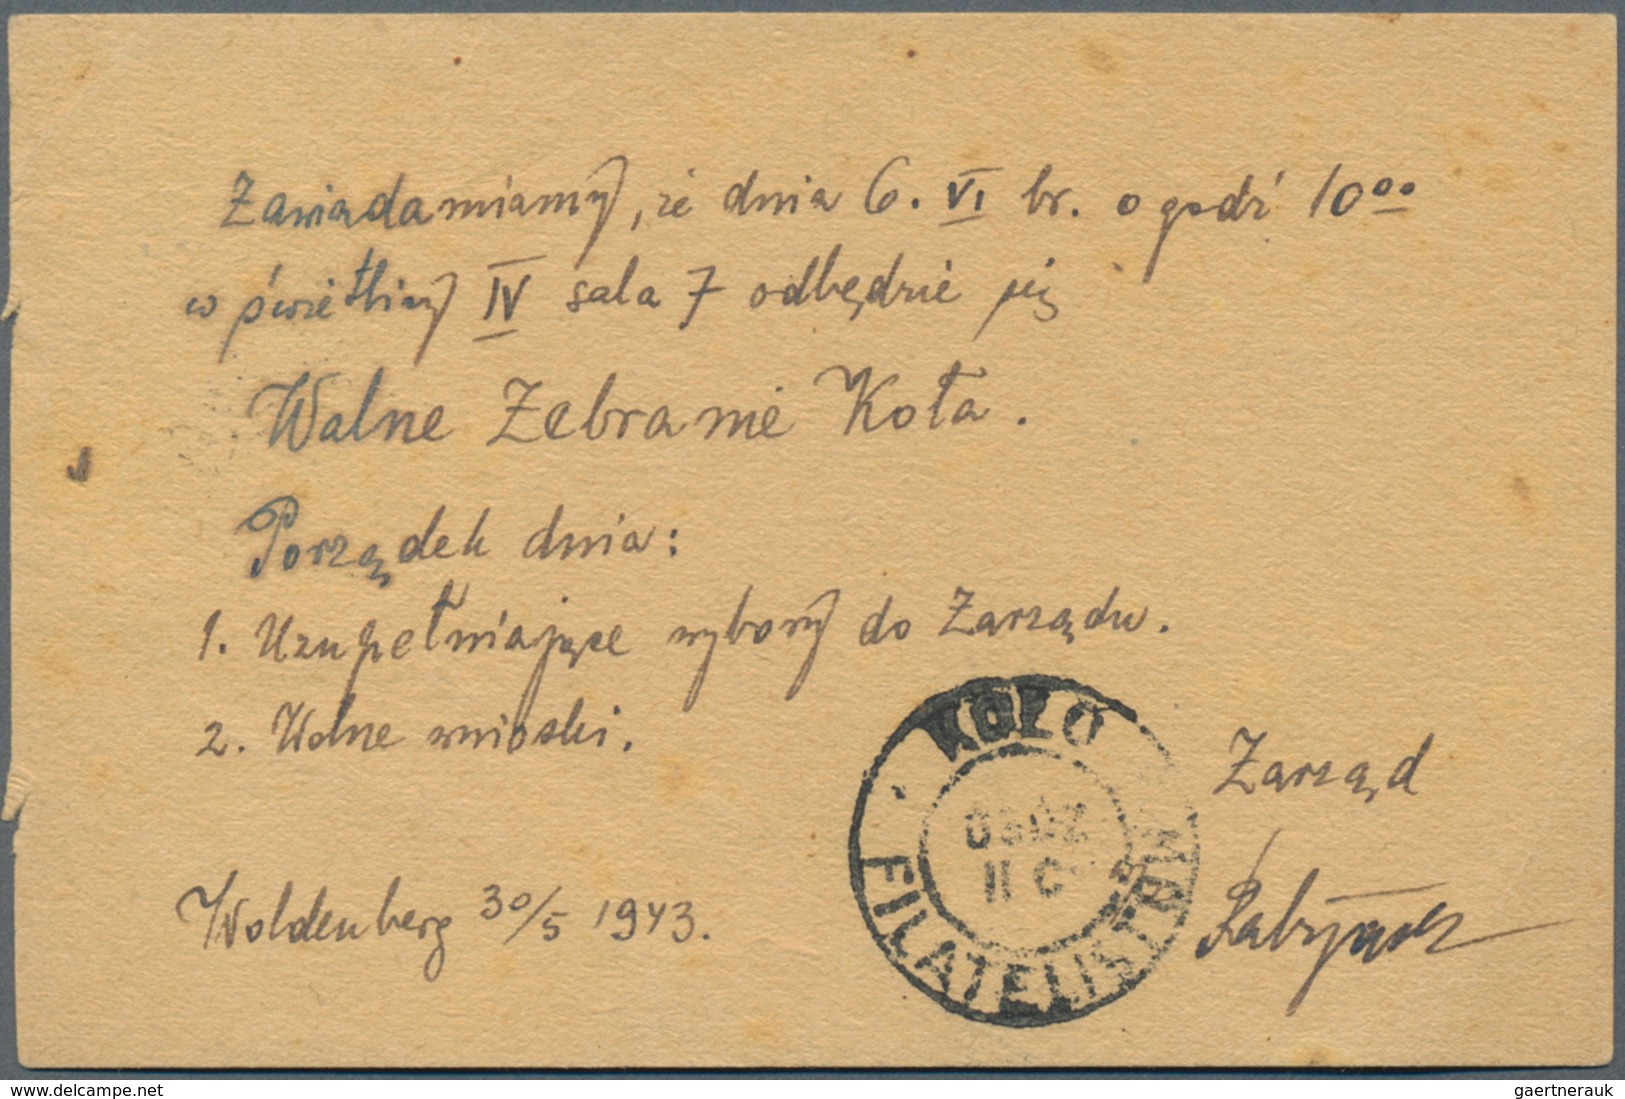 Zawiadamiamy, że dnia 6. VI br. o godź 10⁰⁰
w świetlicy IV sala 7 odbędzie się
Walne Zebranie Koła.
Porządek dnia:
1. Uzupełniające wybory do Zarządu.
2. Wolne wnioski.
Zarząd
Woldenberg 30/5 1943.
KOŁO
II C
FILATELIST
www.delcampe.net
gaertnerauk